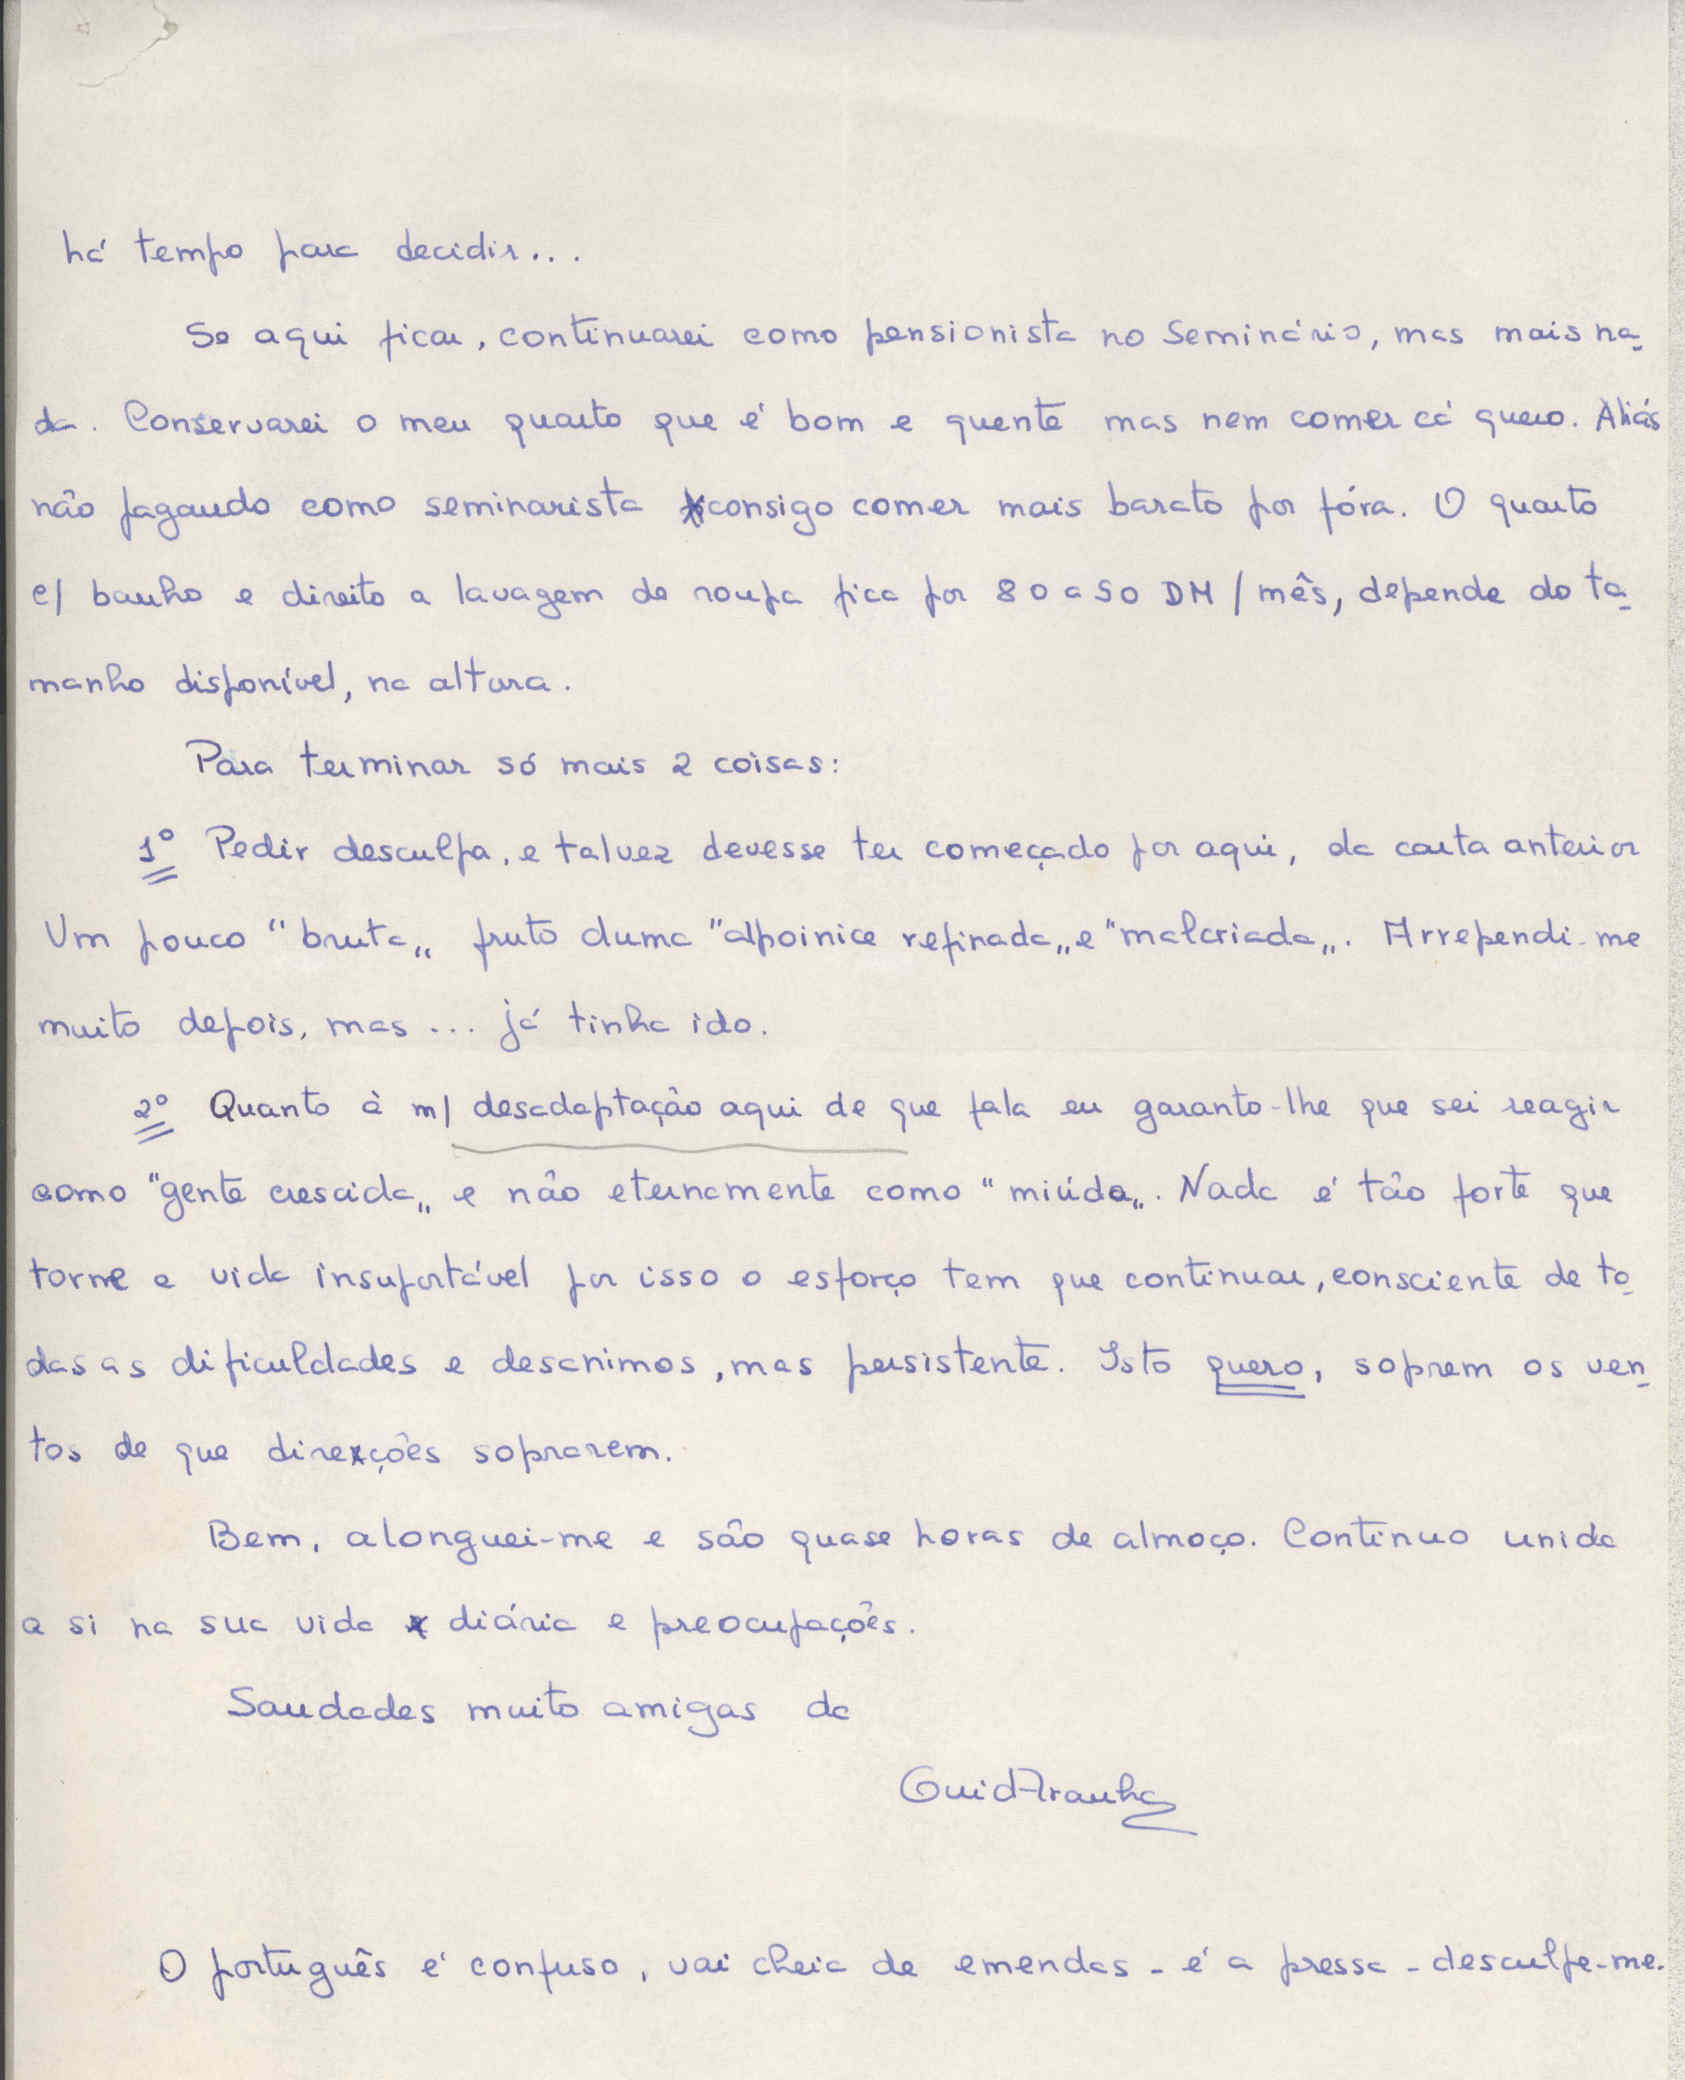 há tempo para decidir...
Se aqui ficar, continuarei como pensionista no Seminário, mas mais na-
da. Conservarei o meu quarto que é bom e quente mas nem comer cá quero. Aliás
não pagando como seminarista consigo comer mais barato por fóra. O quarto
c/ banho e direito a lavagem de roupa fica por 80 a 90 DM / mês, depende do ta-
manho disponível, na altura.
Para terminar só mais 2 coisas:
1º Pedir desculpa, e talvez devesse ter começado por aqui, da carta anterior
Um pouco "bruta„ fruto duma "alpoinice refinada„ e "malcriada„. Arrependi-me
muito depois, mas ... já tinha ido.
2º Quanto à m/ desadaptação aqui de que fala eu garanto-lhe que sei reagir
como "gente crescida„ e não eternamente como "miúda„. Nada é tão forte que
torne a vida insuportável por isso o esforço tem que continuar, consciente de to-
das as dificuldades e desanimos, mas persistente. Isto quero, soprem os ven-
tos de que direcções soprarem.
Bem, alonguei-me e são quase horas de almoço. Continuo unida
a si na sua vida diária e preocupações.
Saudades muito amigas da
GuidAranha
O português é confuso, vai cheia de emendas - é a pressa - desculpe-me.